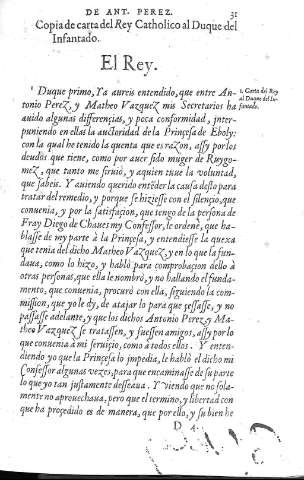 DE ANT. PEREZ. 31
Copia de carta del Rey Catholico al Duque del
Infantado.
El Rey.
1. Carta del Rey
al Duque del In-
fantado.
Duque primo, Ya aureis entendido, que entre An-
tonio Perez, y Matheo Vazquez mis Secretarios ha
auido algunas differençias, y poca conformidad, inter-
puniendo en ellas la auctoridad de la Prinçesa de Eboly:
con la qual he tenido la quenta que es razon, assy por los
deudos que tiene, como por auer sido muger de Ruygo-
mez, que tanto me siruió, y aquien tuue la voluntad,
que sabeis. Y auiendo querido entẽder la causa desto para
tratar del remedio, y porque se hiziesse con el silençio, que
conuenia, y por la satisfaçion, que tengo de la persona de
Fray Diego de Chaues my Confessor, le ordenè, que ha-
blasse de my parte à la Prinçesa, y entendiesse la quexa
que tenia del dicho Matheo Vazquez, y en lo que la fun-
daua, como lo hizo, y habló para comprobaçion dello à
otras personas, que ella le nombró, y no hallando el funda-
mento, que conuenia, procuró con ella, siguiendo la com-
mission, que yo le dy, de atajar lo para que çessasse, y no
passasse adelante, y que los dichos Antonio Perez y Ma-
theo Vazquez se tratassen, y fuessen amigos, assy por lo
que conuenia à mi seruiçio, como à todos ellos. Y enten-
diendo yo que la Prinçesa lo jmpedia, le habló el dicho mi
Confessor algunas vezes, para que encaminasse de su parte
lo que yo tan justamente desseaua. Y viendo que no sola-
mente no aprouechaua, pero que el termino, y libertad con
que ha proçedido es de manera, que por ello, y su bien he
D 4